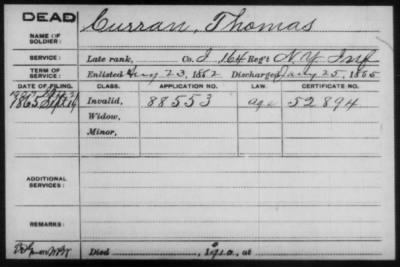 DEAD
Curran, Thomas
NAME OF SOLDIER:
SERVICE: Late rank, Co. I 164 Reg't N.Y. Inf
TERM OF SERVICE: Enlisted Aug 23, 1862 Discharged 25, 1865
DATE OF FILING. CLASS. APPLICATION NO. LAW. CERTIFICATE NO.
1865 Sept 16 Invalid, 88553 52894
Widow,
Minor,
ADDITIONAL SERVICES:
REMARKS:
Died , at